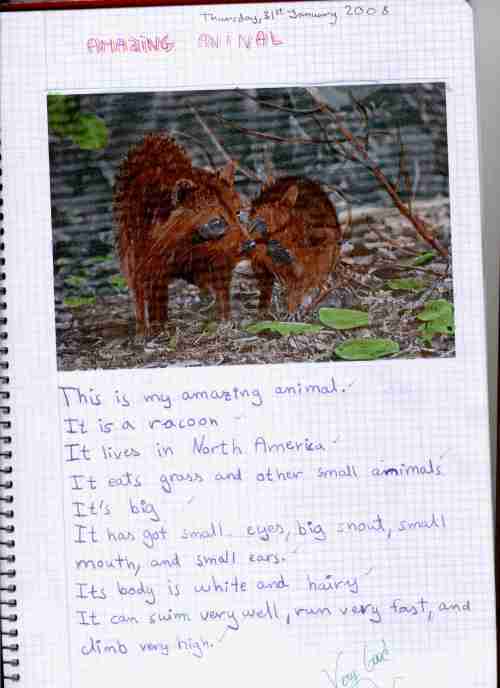 Thursday, 31st January 2008
AMAZING ANINAL
This is my amazing animal.
It is a racoon
It lives in North America
It eats grass and other small animals
It's big
It has got small eyes, big snout, small
mouth, and small ears.
Its body is white and hairy
It can swim very well, run very fast, and
climb very high.
Very Good